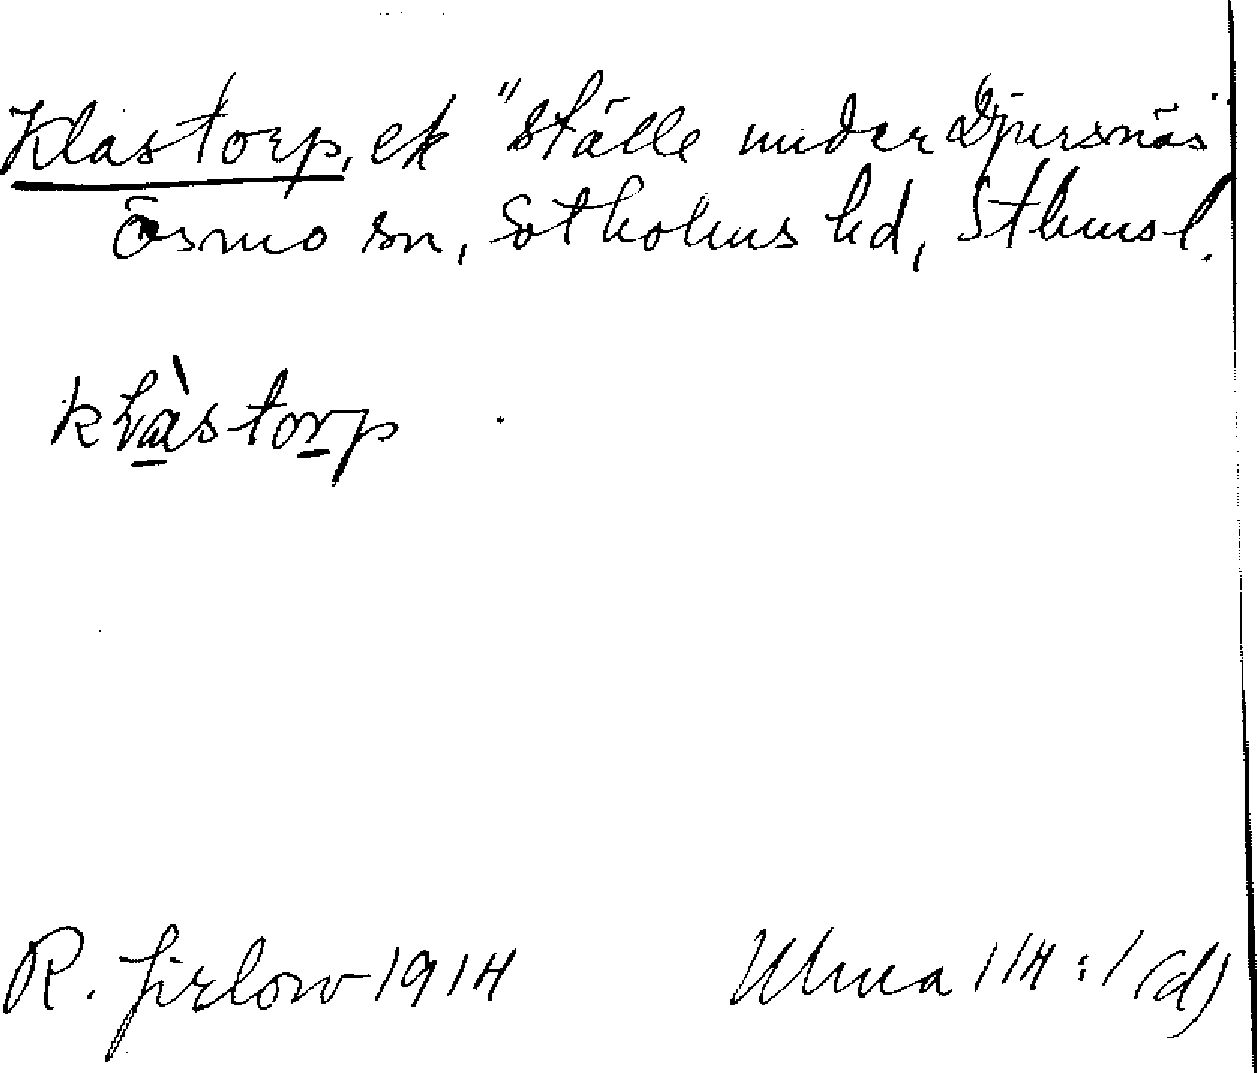 Klastorp, ek "ställe under Djursnäs"
Ösmo sn, Sotholms hd, Sthmsl.
klàstorp
R. Jirlow 1914 Ulma 114:1 (d)